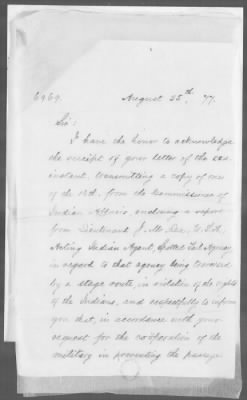 6969.
August 25th, '77.
Sir:
I have the honor to acknowledge
the receipt of your letter of the
instant, transmitting a copy of one
of the 13th, from the Commissioner of
Indian Affairs, enclosing a report
from Lieutenant J. M. Lee, U.S.A.,
Acting Indian Agent, Spotted Tail Agency
in regard to that agency being traversed
by a stage route, in violation of the rights
of the Indians, and respectfully to inform
you that, in accordance with your
request for the coöperation of the
military in preventing the passage